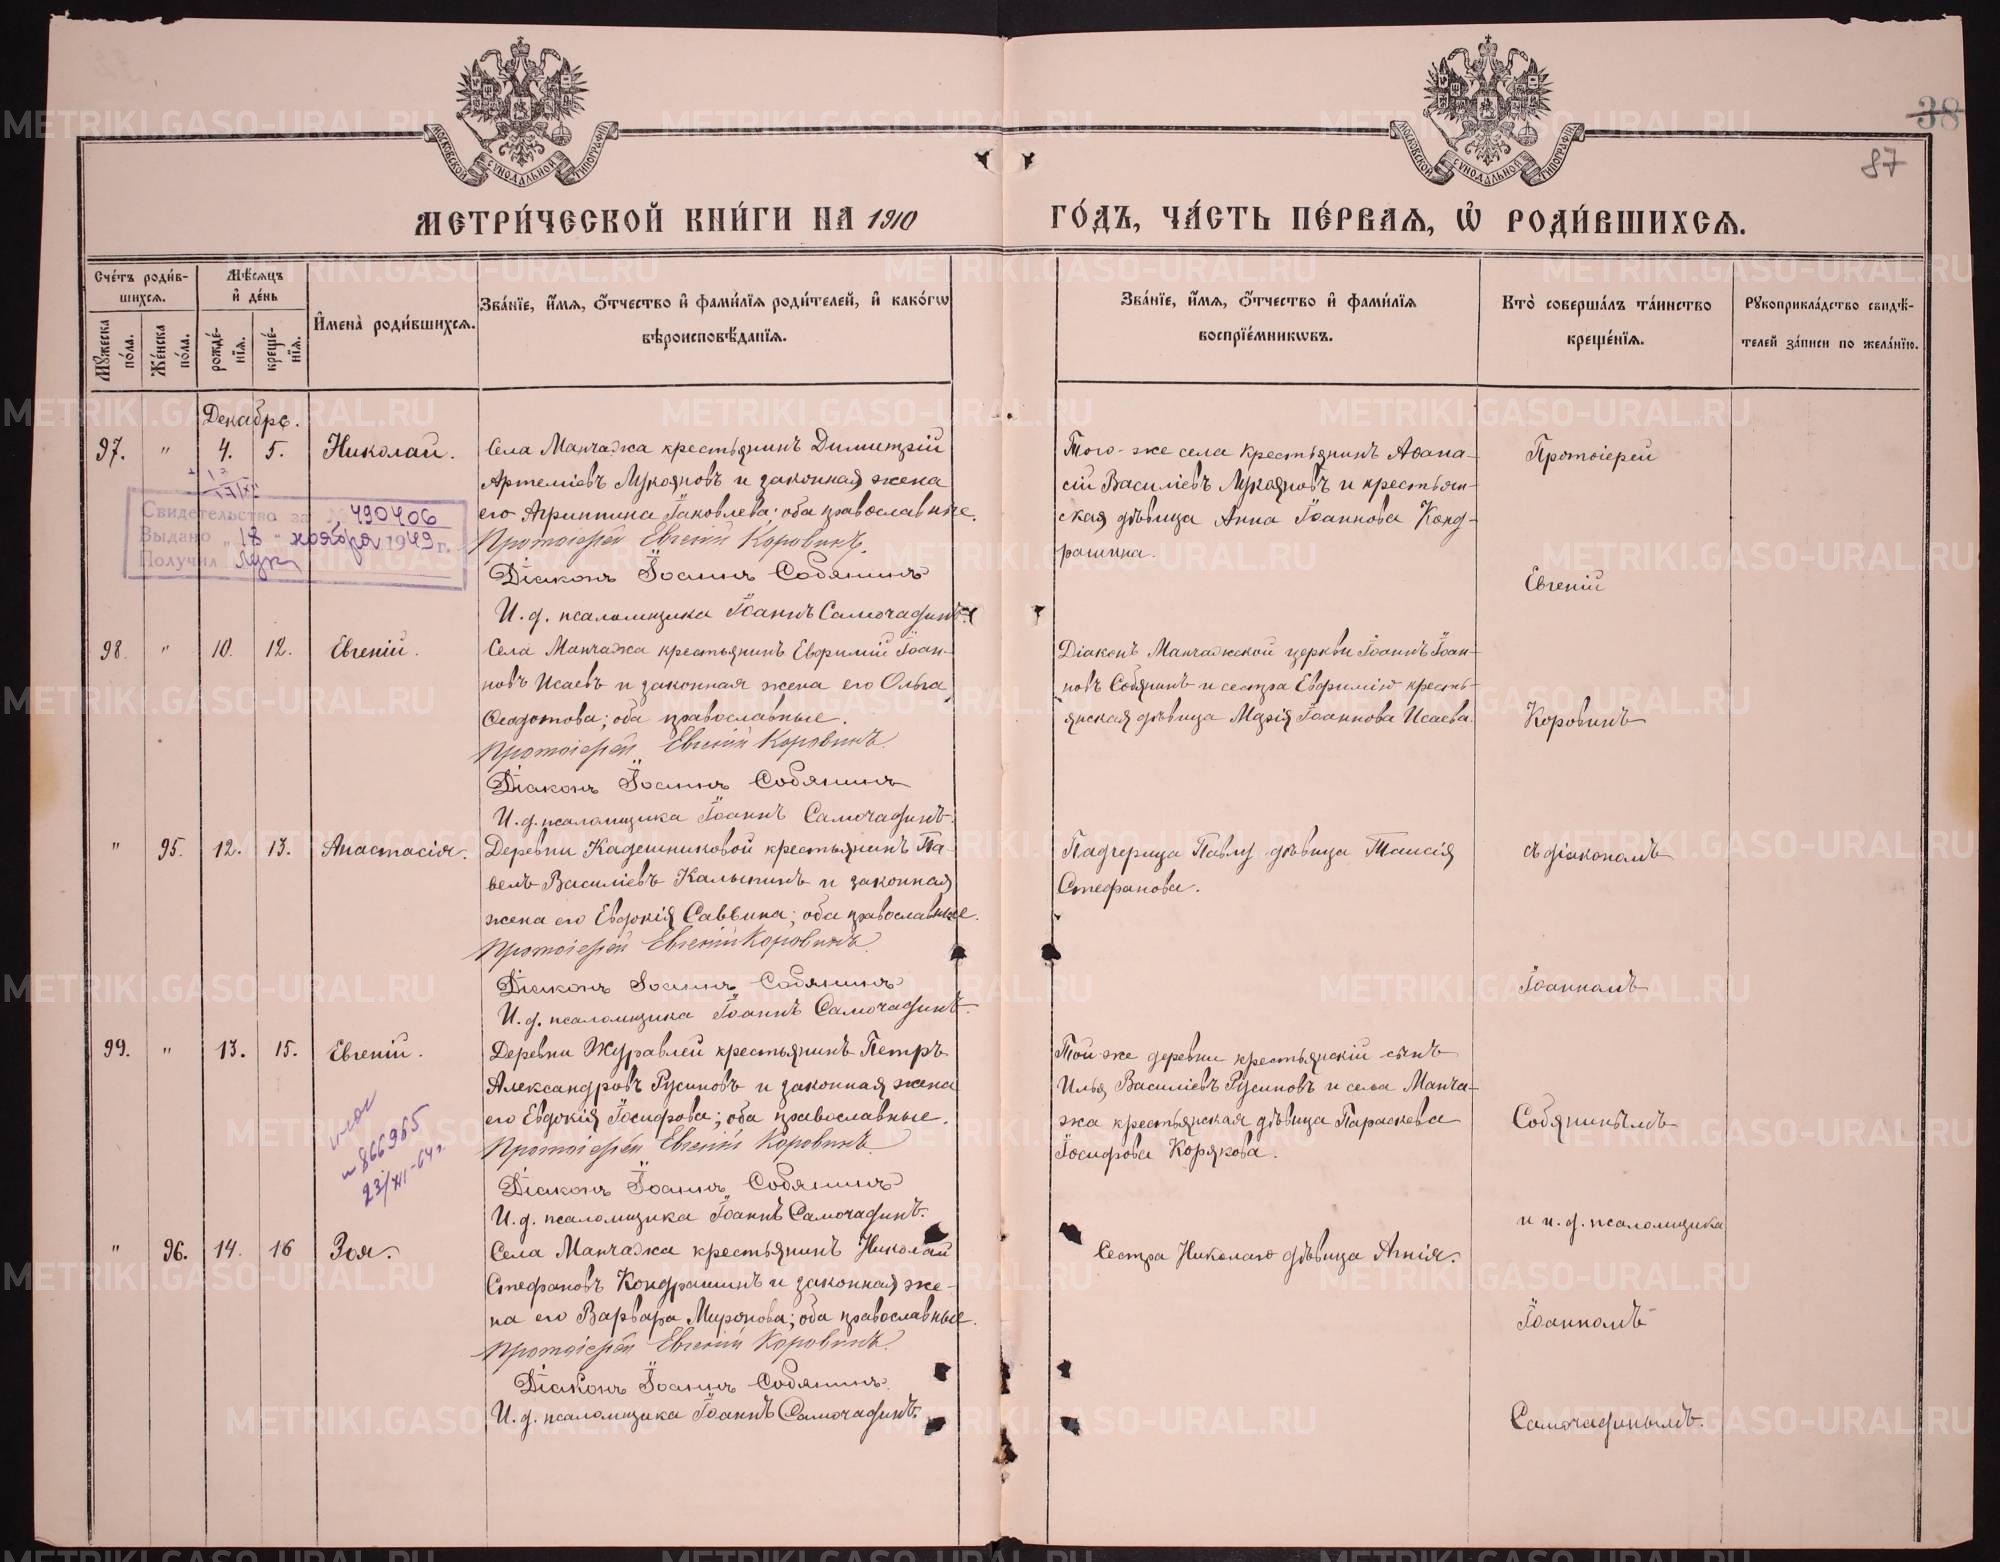 МОСКОВСКОЙ СУНОДАЛЬНОЙ ТИПОГРАФІИ
МОСКОВСКОЙ СУНОДАЛЬНОЙ ТИПОГРАФІИ
38
87
МЕТРИ́ЧЕСКОЙ КНИ́ГИ НА 1910
ГО́ДЪ, ЧА́СТЬ ПЕ́РВАѦ, Ѡ҆ РОДИ́ВШИХСѦ.
Сче́тъ роди́в-
шихсѧ.
Мꙋ́жеска по́ла.
Же́нска по́ла.
Мѣ́сѧцъ
и҆ де́нь
рожде́-
нїѧ.
креще́-
нїѧ.
И҆мена̀ роди́вшихсѧ.
Зва́нїе, и҆́мѧ, ѻ҆́тчество и҆ фами́лїѧ роди́телей, и҆ како́гѡ
вѣроисповѣ́данїѧ.
Зва́нїе, и҆́мѧ, ѻ҆́тчество и҆ фами́лїѧ
воспрїе́мникѡвъ.
Кто̀ соверша́лъ та́инство
креще́нїѧ.
Рꙋкоприкла́дство свидѣ́-
телей за́писи по жела́нїю.
Декабрь.
97. " 4. 5. Николай.
Села Манчажа крестьянинъ Димитрій
Артеміевъ Лукояновъ и законная жена
его Агриппина Іаковлева; оба православные.
Протоіерей Евгеній Коровинъ.
Діаконъ Іоаннъ Собянинъ
И. д. псаломщика Іоаннъ Самочадинъ.
Того-же села крестьянинъ Аѳана-
сій Василіевъ Лукояновъ и крестьян-
ская дѣвица Анна Іоаннова Конд-
рашина.
Свидетельство за № 490406
Выдано "18" ноября 1949 г.
Получил Лук
98. " 10. 12. Евгеній.
Села Манчажа крестьянинъ Евфимій Іоан-
новъ Исаевъ и законная жена его Ольга
Ѳеодотова; оба православные.
Протоіерей Евгеній Коровинъ.
Діаконъ Іоаннъ Собянинъ
И. д. псаломщика Іоаннъ Самочадинъ.
Діаконъ Манчажской церкви Іоаннъ Іоан-
новъ Собянинъ и сестра Евфимію кресть-
янская дѣвица Марія Іоаннова Исаева.
" 95. 12. 13. Анастасія.
Деревни Кадешниковой крестьянинъ Па-
велъ Василіевъ Калынинъ и законная
жена его Евдокія Саввина; оба православные.
Протоіерей Евгеній Коровинъ.
Діаконъ Іоаннъ Собянинъ
И. д. псаломщика Іоаннъ Самочадинъ.
Падчерица Павлу дѣвица Таисія
Стефанова.
99. " 13. 15. Евгеній.
Деревни Журавлей крестьянинъ Петръ
Александровъ Русиновъ и законная жена
его Евдокія Іосифова; оба православные.
Протоіерей Евгеній Коровинъ.
Діаконъ Іоаннъ Собянинъ
И. д. псаломщика Іоаннъ Самочадинъ.
Той же деревни крестьянскій сынъ
Илья Василіевъ Русиновъ и села Манча-
жа крестьянская дѣвица Параскева
Іосифова Корякова.
866965
23/XII-64 г.
" 96. 14. 16 Зоя.
Села Манчажа крестьянинъ Николай
Стефановъ Кондрашинъ и законная же-
на его Варвара Миронова; оба православные.
Протоіерей Евгеній Коровинъ.
Діаконъ Іоаннъ Собянинъ.
И. д. псаломщика Іоаннъ Самочадинъ.
Сестра Николаю дѣвица Агнія.
Протоіерей
Евгеній
Коровинъ
съ діакономъ
Іоанномъ
Собянинымъ
и и. д. псаломщика
Іоанномъ
Самочадинымъ.
METRIKI.GASO-URAL.RU